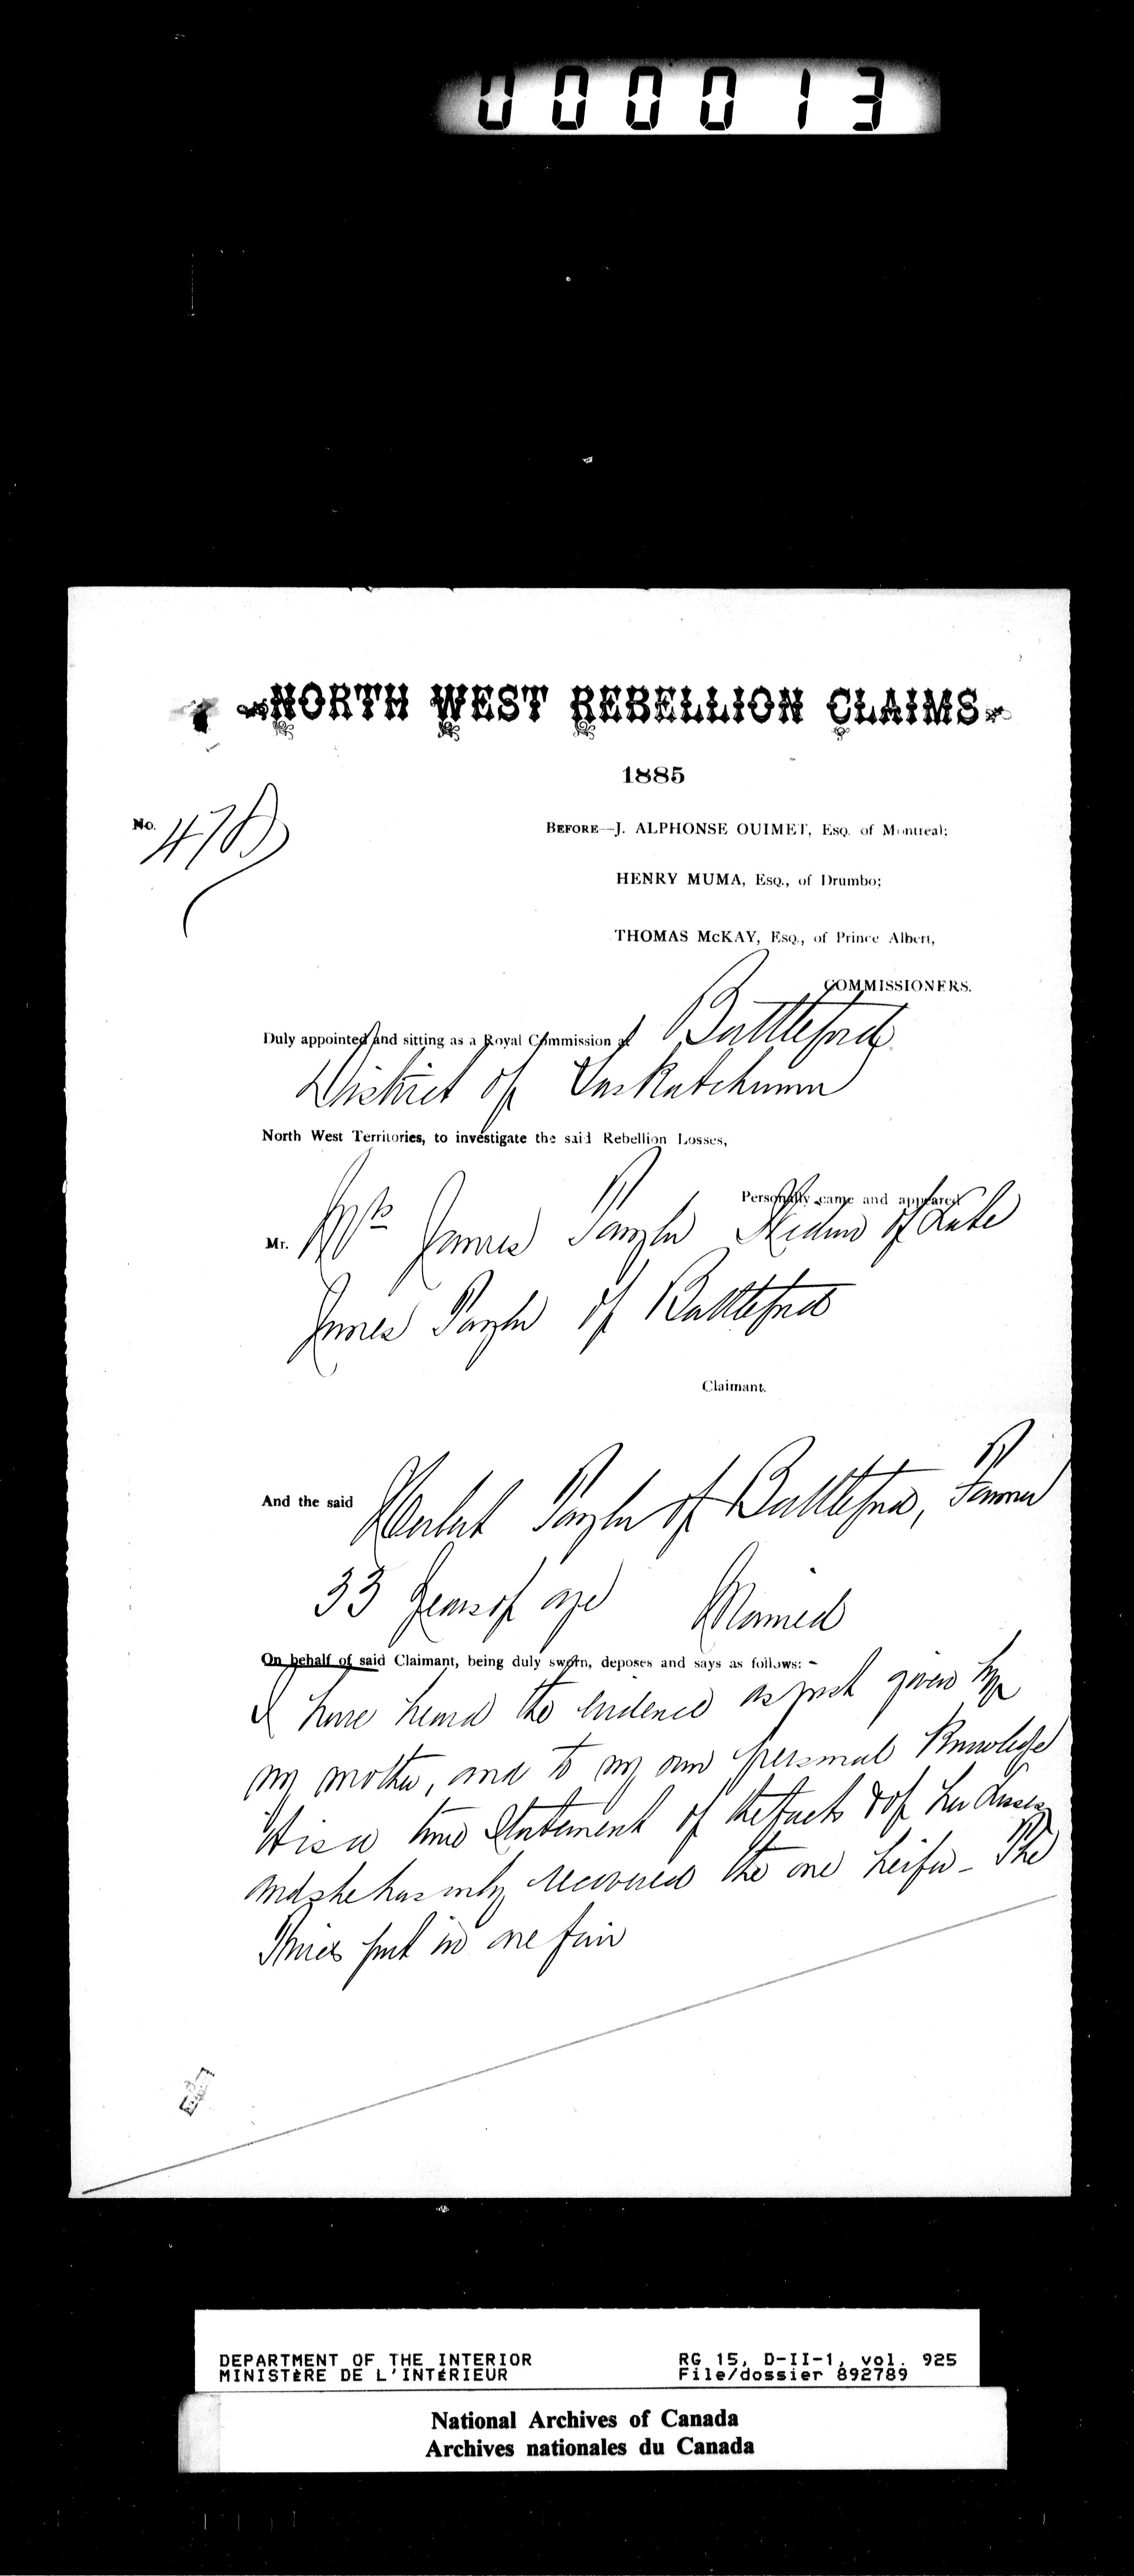 000013
NORTH WEST REBELLION CLAIMS
1885
No. 478
BEFORE—J. ALPHONSE OUIMET, Esq. of Montreal;
HENRY MUMA, Esq., of Drumbo;
THOMAS McKAY, Esq., of Prince Albert,
COMMISSIONERS.
Duly appointed and sitting as a Royal Commission at Battleford
District of Saskatchewan
North West Territories, to investigate the said Rebellion Losses,
Personally came and appeared
Mr. Mrs James Taylor Widow of Late
James Taylor of Battleford
Claimant.
And the said Herbert Taylor of Battleford, Farmer
33 years of age Married
On behalf of said Claimant, being duly sworn, deposes and says as follows: -
I have heard the evidence as just given by
my mother, and to my own personal Knowledge
it is a true Statement of the facts & of her Losses
and she has only recovered the one heifer - The
Prices put in are fair
DEPARTMENT OF THE INTERIOR
MINISTÈRE DE L'INTÉRIEUR
RG 15, D-II-1, vol. 925
File/dossier 892789
National Archives of Canada
Archives nationales du Canada